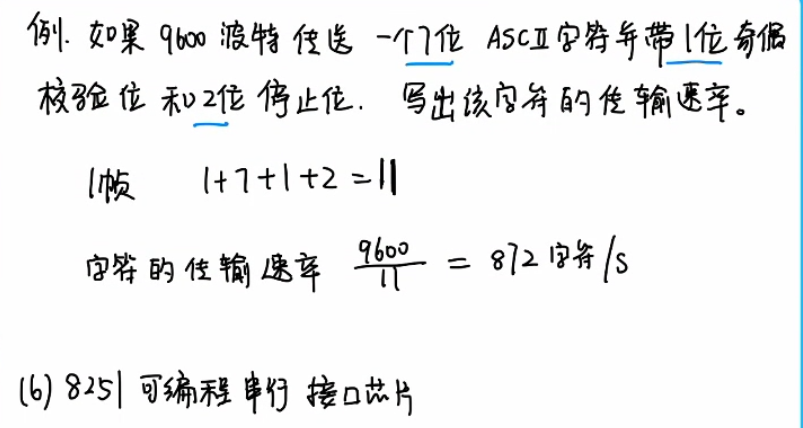 例. 如果 9600 波特 传送 一个7位 ASCII字符并带1位奇偶
校验位 和2位 停止位. 写出该字符的传输速率。
1帧 1+7+1+2=11
字符的传输速率 9600/11 = 872字符/s
(6) 8251可编程串行接口芯片